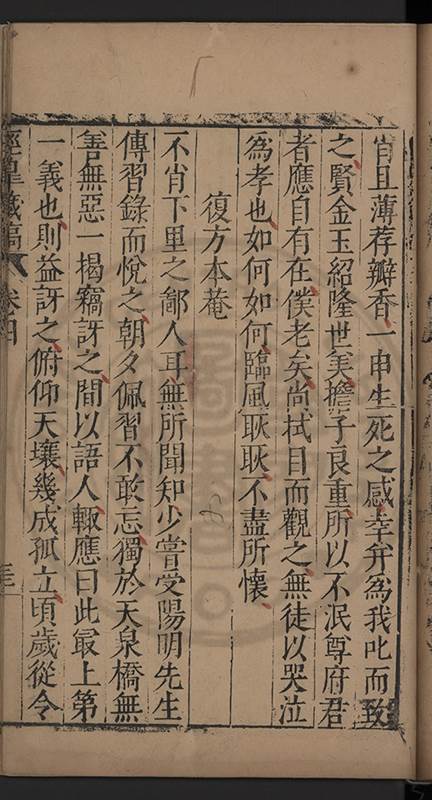 肯且薄荐瓣香一申生死之感幸弁爲我叱而致
之賢金玉紹隆世美擔子良重所以不泯尊府君
者應自有在僕老矣尚拭目而觀之無徒以哭泣
爲孝也如何如何臨風耿耿不盡所懷
復方本菴
不肖下里之鄙人耳無所聞知少嘗受陽明先生
傳習錄而悅之朝夕佩習不敢忘獨於天泉橋無
善無惡一揭竊訝之間以語人輙應曰此最上第
一義也則益訝之俯仰天壤幾成孤立頃歲從令
涇臯藏稿
卷四